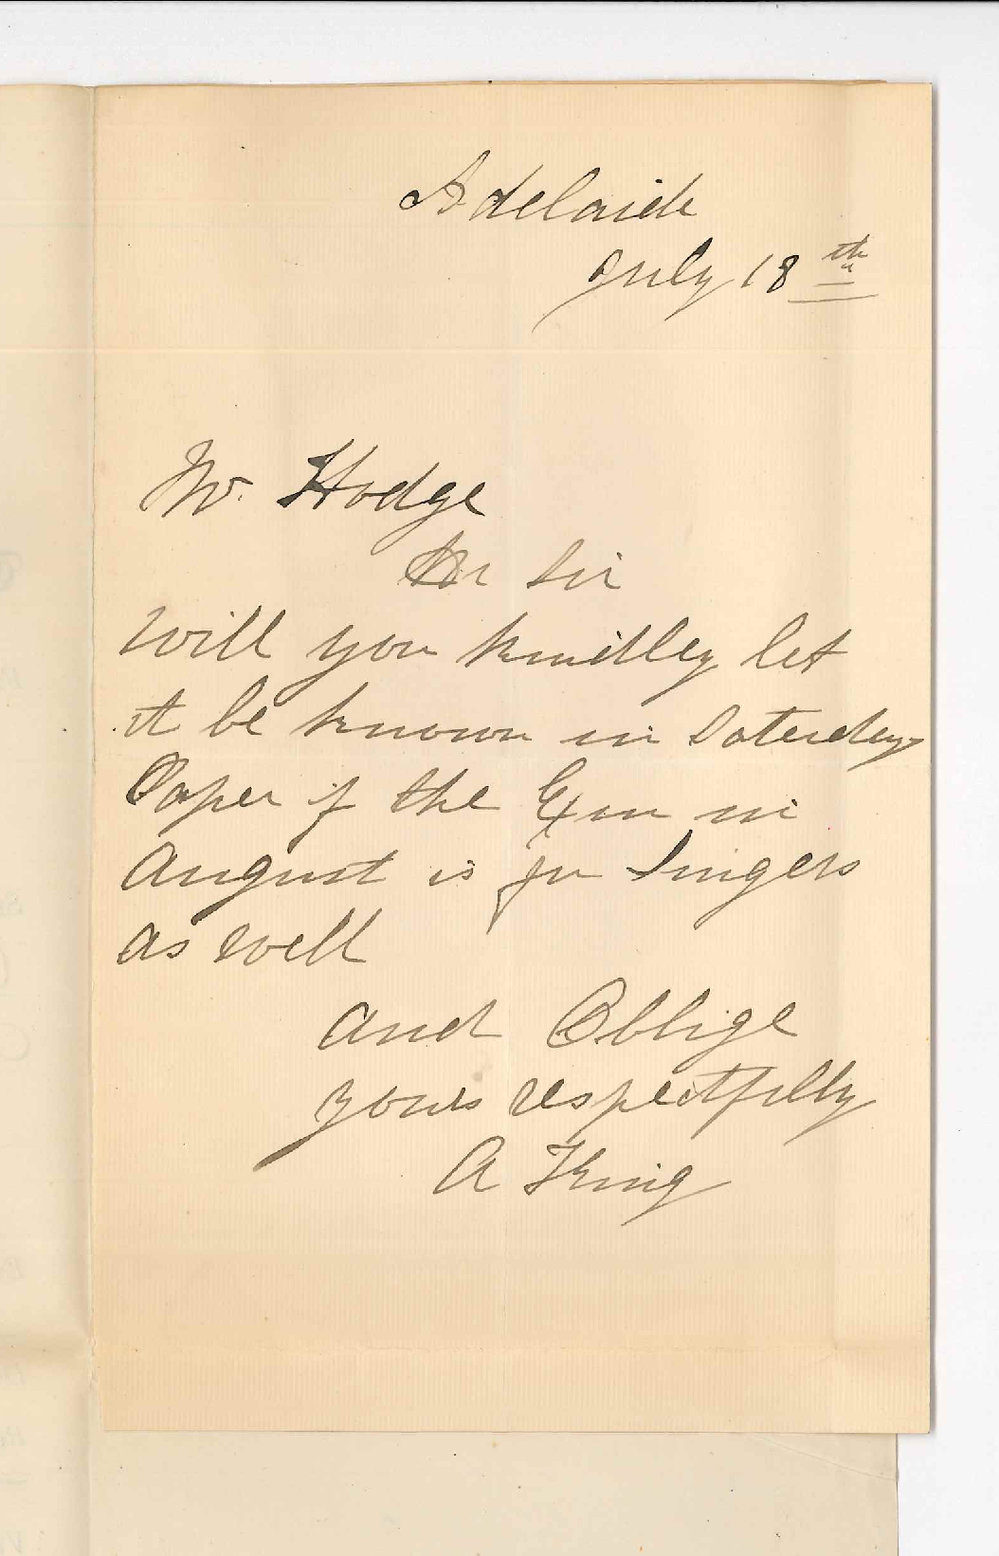 Adelaide
July 18th
Mr. Hodge
Dr Sir
Will you kindley let
it be known in Saterday
Paper if the Exm in
August is for Singers
as well
and Oblige
yours respectfully
A King